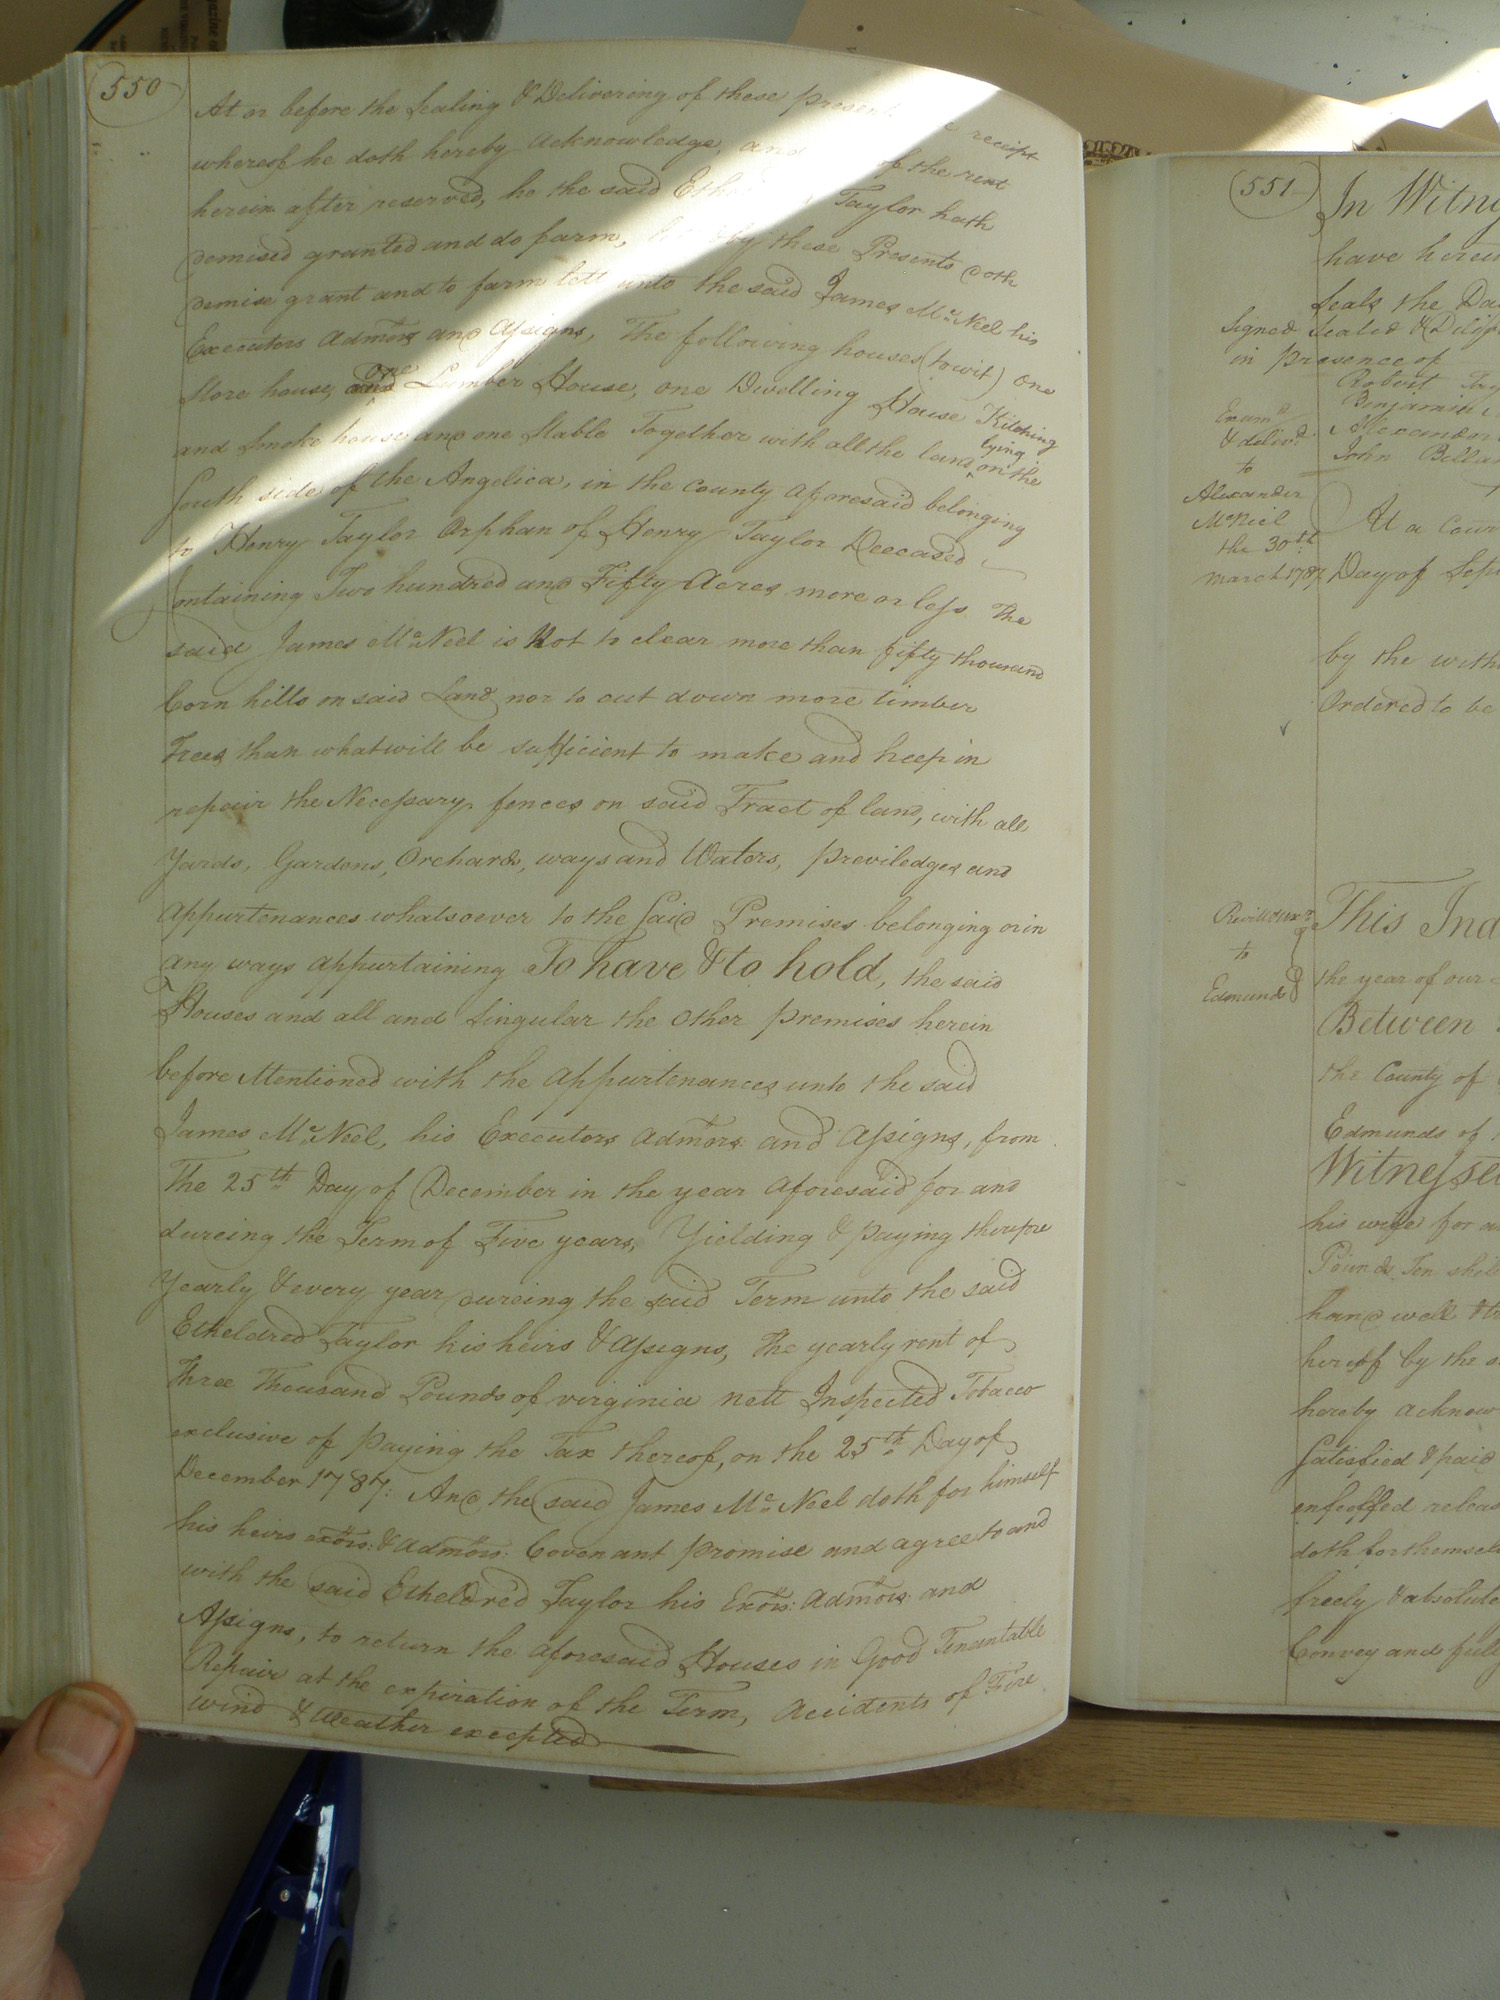 550
At or before the Sealing & Delivering of these present receipt
whereof he doth hereby acknowledge, and of the rent
herein after reserved, he the said Taylor hath
demised granted and do farm, by these Presents doth
demise grant and to farm lett unto the said James Mc.Neel his
Executors Admors and Assigns, The following houses (to wit) One
Store house, and one Lumber House, one Dwelling House Kitching
and Smoke house and one Stable Together with all the land lying on the
South side of the Angelica, in the county aforesaid belonging
to Henry Taylor Orphan of Henry Taylor Deceased
Containing Two hundred and Fifty Acres more or less. The
said James Mc.Neel is Not to clear more than fifty thousand
Corn hills on said Land nor to cut down more timber
Trees than what will be sufficient to make and keep in
repair the Necessary fences on said Tract of land, with all
Yards, Gardens, Orchards, ways and Waters, previledges and
Appurtenances whatsoever to the Said Premises belonging or in
any ways appurtaining To have & to hold, the said
Houses and all and Singular the Other premises herein
before Mentioned with the Appurtenances unto the said
James Mc.Neel, his Executors Admors and Assigns, from
The 25th Day of December in the year aforesaid for and
dureing the Term of Five years, Yielding & paying therefore
Yearly & every year dureing the said Term unto the said
Etheldred Taylor his heirs & Assigns, The yearly rent of
Three Thousand Pounds of virginia nett Inspected Tobacco
exclusive of paying the Tax thereof, on the 25th Day of
December 1787: And the said James Mc. Neel doth for himself
his heirs exors: & Admors: Covenant promise and agree to and
with the said Etheldred Taylor his Exors: Admors and
Assigns, to return the aforesaid Houses in Good Tenentable
Repair at the expiration of the Term, Accidents of Fire
wind & Weather excepted
551
In Witne
have hereu
Seals the Da
Signed Sealed & Deliv
in presence of
Robert Tay
Benjamin
Alexander
John Bella
Examd.
& delivd.
to
Alexander
McNiel
the 30th
March 1787
At a Cour
Day of Sep
by the with
Ordered to be
to
Edmunds
This Ind
the year of our
Between
the County of
Edmunds of
Witnesse
his wife for a
Pounds Ten shil
hand well & tr
hereof by the s
hereby acknow
Satisfied & paid
enfeoffed releas
doth for themsel
freely & absolute
Convey and full